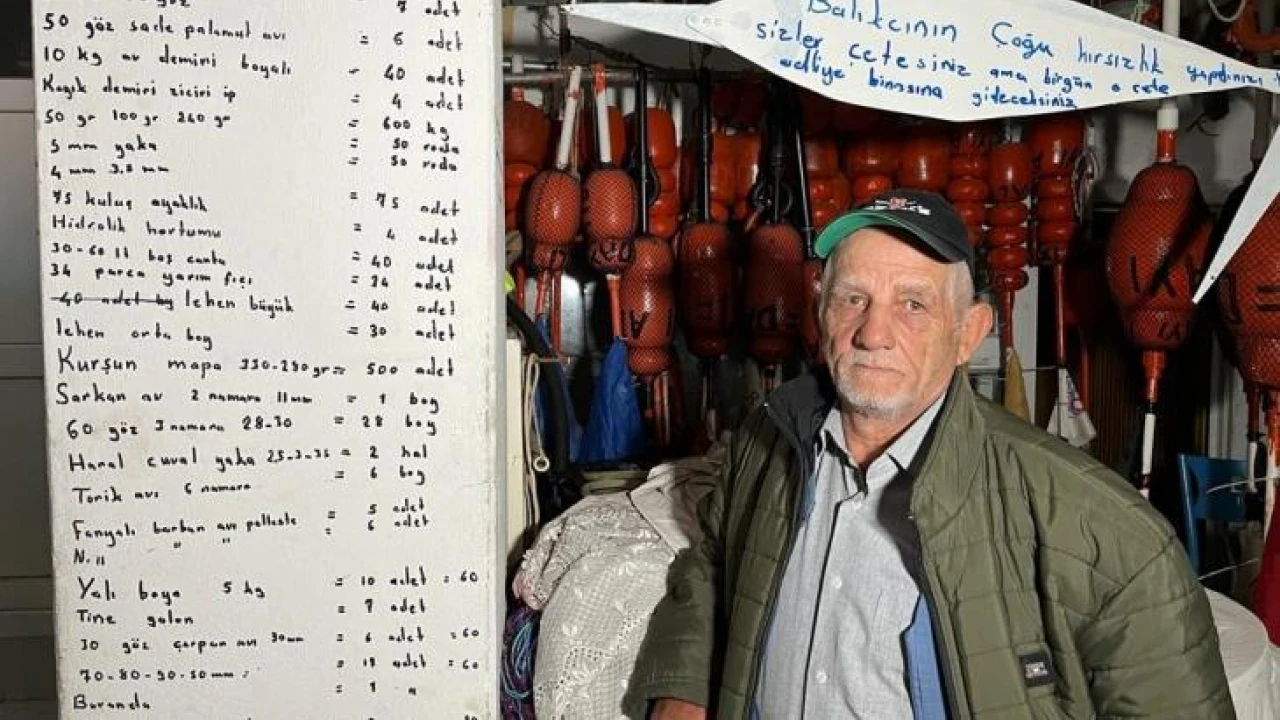 göz 7 adet
50 göz sade palamut avı = 6 adet
10 kg av demiri boyalı = 40 adet
Kayık demiri ziciri ip = 4 adet
50 gr 100 gr 240 gr = 600 kg
5 mm yaka = 50 roda
4 mm 3.5 mm = 50 roda
75 kuluç ayaklık = 75 adet
Hidrolik hortumu = 4 adet
30-60 lt boş canta = 40 adet
34 parca yarım fıcı = 34 adet
lehen büyük = 40 adet
lehen orta boy = 30 adet
Kurşun mapa 330-250 gr = 500 adet
Sarkan av 2 namara 11 mm = 1 boy
60 göz 3 namara 28-30 = 28 boy
Haral cuval yaka = 2 hal
Torik avı 6 namara = 6 boy
Fanyalı barban avı = 5 adet
" " = 6 adet
N.11
Yalı boya 5 kg = 10 adet = 60
Tine galon = 7 adet
30 göz çarpan avı 30 mm = 6 adet = 60
70-80-90-50 mm = 18 adet = 60
Baranda = 1 "
Balıkcının Çoğu hırsızlık yapdınız
sizler çetesiniz ama birgün o cete
adliye binasına gideceksiniz